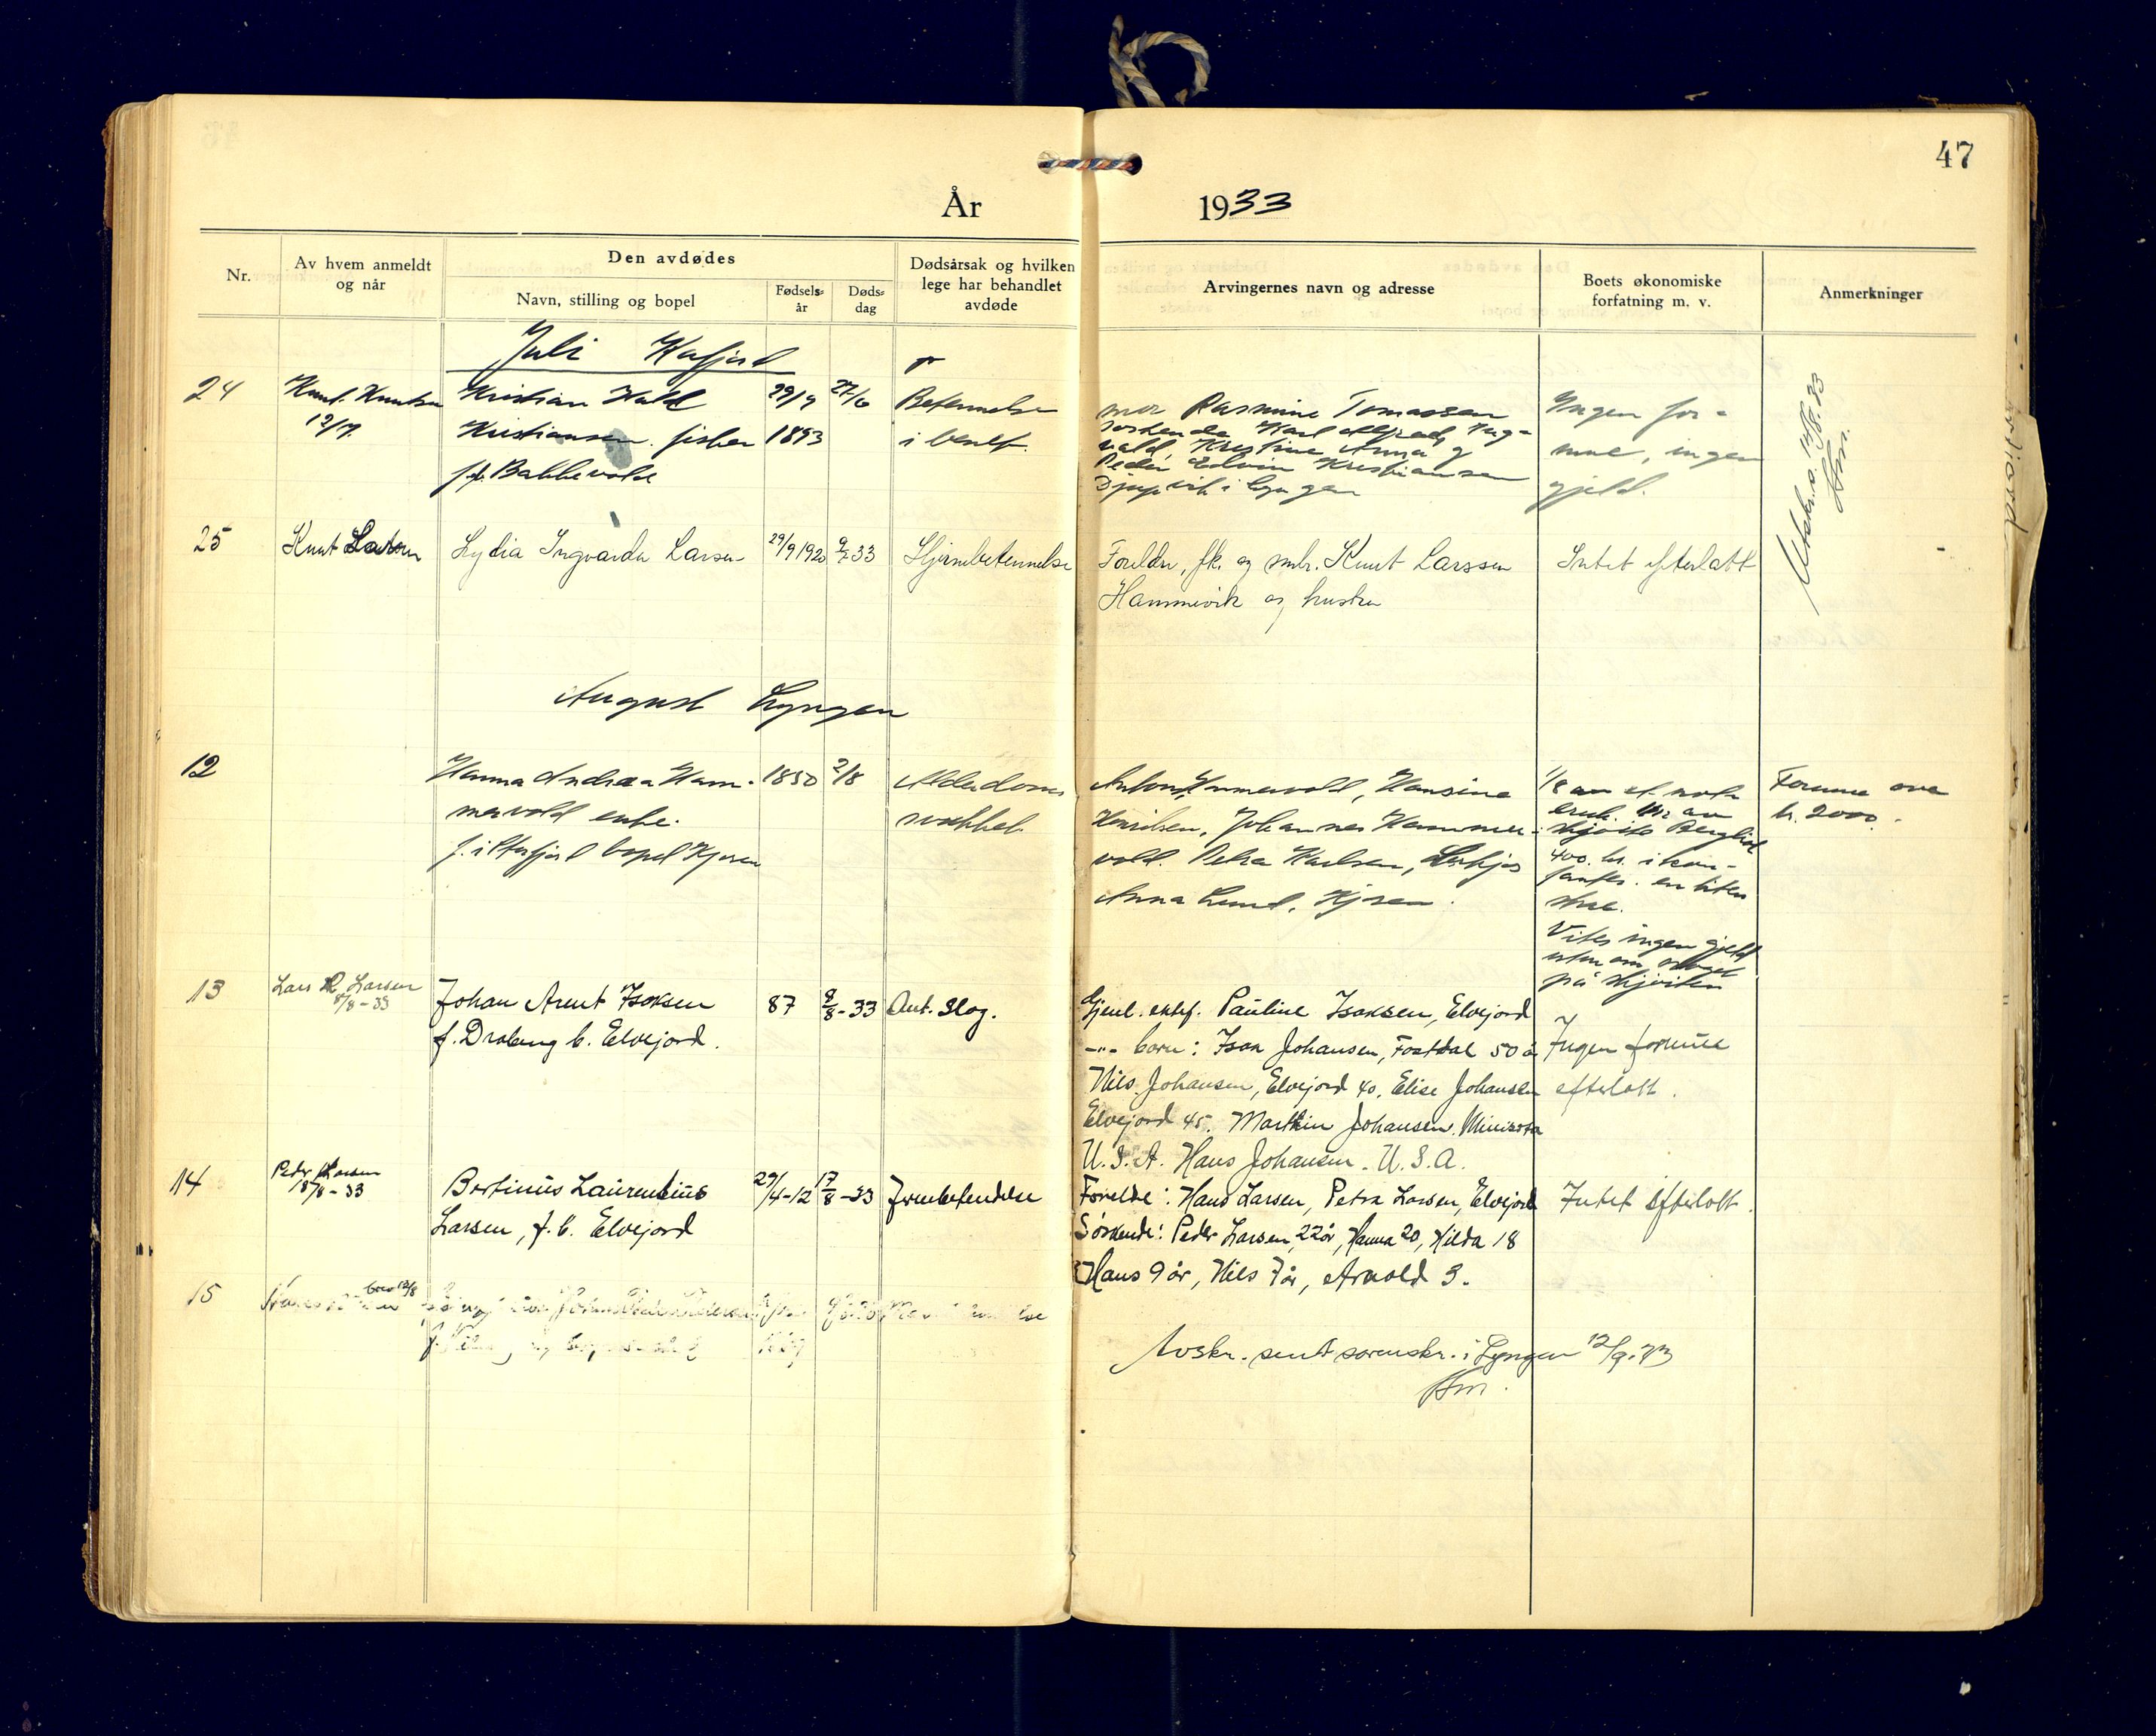 47
År 1933
Nr.
Av hvem anmeldt og når
Den avdødes
Navn, stilling og bopel
Fødsels-år
Døds-dag
Dødsårsak og hvilken lege har behandlet avdøde
Arvingernes navn og adresse
Boets økonomiske forfatning m. v.
Anmerkninger
Juli Kafjord
24
Knut Knutsen
12/7.
Kristian Hald
Kristiansen. fisker
f.f. Bakkevold
29/9
1893
27/6
Betennelse
i benet.
mor Rasmine Tomassen
søskende Karl Alfred, Ing-
vald, Kristine Anna og
Peder Edvin Kristiansen
Djupvik i Lyngen
Ingen for-
mue, ingen
gjeld.
Utskr. s. 14/8. 33
Hm.
25
Knut Larsen
Lydia Ingvarda Larsen
29/9 1920
9/7 33
Hjernebetennelse
Foreldre, fk. og smbr. Knut Larssen
Hammevik og hustru
Intet efterlatt
August Lyngen
12
Hanna Andrea Ham-
mervold enke.
f. i Ulfsfjord bopel Kjosen
1850
2/8
Alderdoms
svakhet
Anton Hammervold, Hansine
Henriksen, Johannes Hammer-
vold. Petra Karlsen,
Anna Lund, Kjosen.
1/8 av et notbruk
400. kr. i kon-
tanter. en liten
Vites ingen gjeld
uten om noget
på skjøiten
Formue ove
kr. 2000.
13
Lars R Larsen
8/8-33
Johan Arent Isaksen
f. Drabeng b. Elvejord.
87
8/8-33
Ant. Slag.
Gjenl. ektef. Pauline Isaksen, Elvejord
-"- born: Isak Johansen, Fostdal 50 år
Nils Johansen, Elvejord 40, Elise Johansen
Elvejord 45. Marthin Johansen. Minisota
U.S.A. Hans Johansen. U.S.A.
Ingen formue
efterlatt.
14
Peder Larsen
18/8-33
Bertinus Laurentius
Larsen, f. b. Elvejord
29/4-12
17/8-33
Foreldre: Hans Larsen, Petra Larsen, Elvejord
Søskende: Peder Larsen, 22 år, Hanna 20, Hilda 18
Hans 9 år, Nils 7 år, Arnold 3.
Intet efterlatt.
15
Avskr. sendt sorenskr. i Lyngen 12/9.33
Hm.